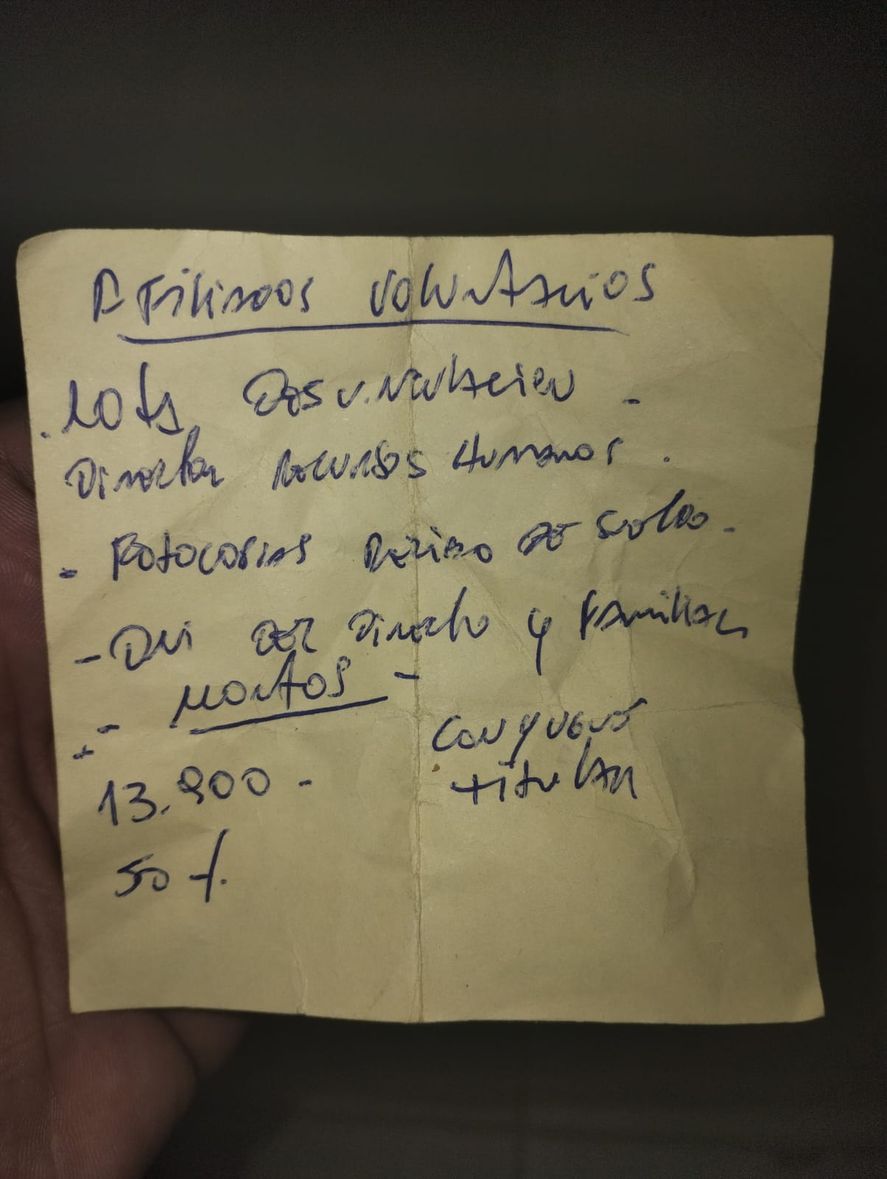 Afiliados Voluntarios
. Nota Desvinculacion -
Director Recursos Humanos .
- Fotocopias Recibo de sueldo -
- DNi del Directo y Familiar
- Montos -
13.900 - Conyuge
titular
50 %